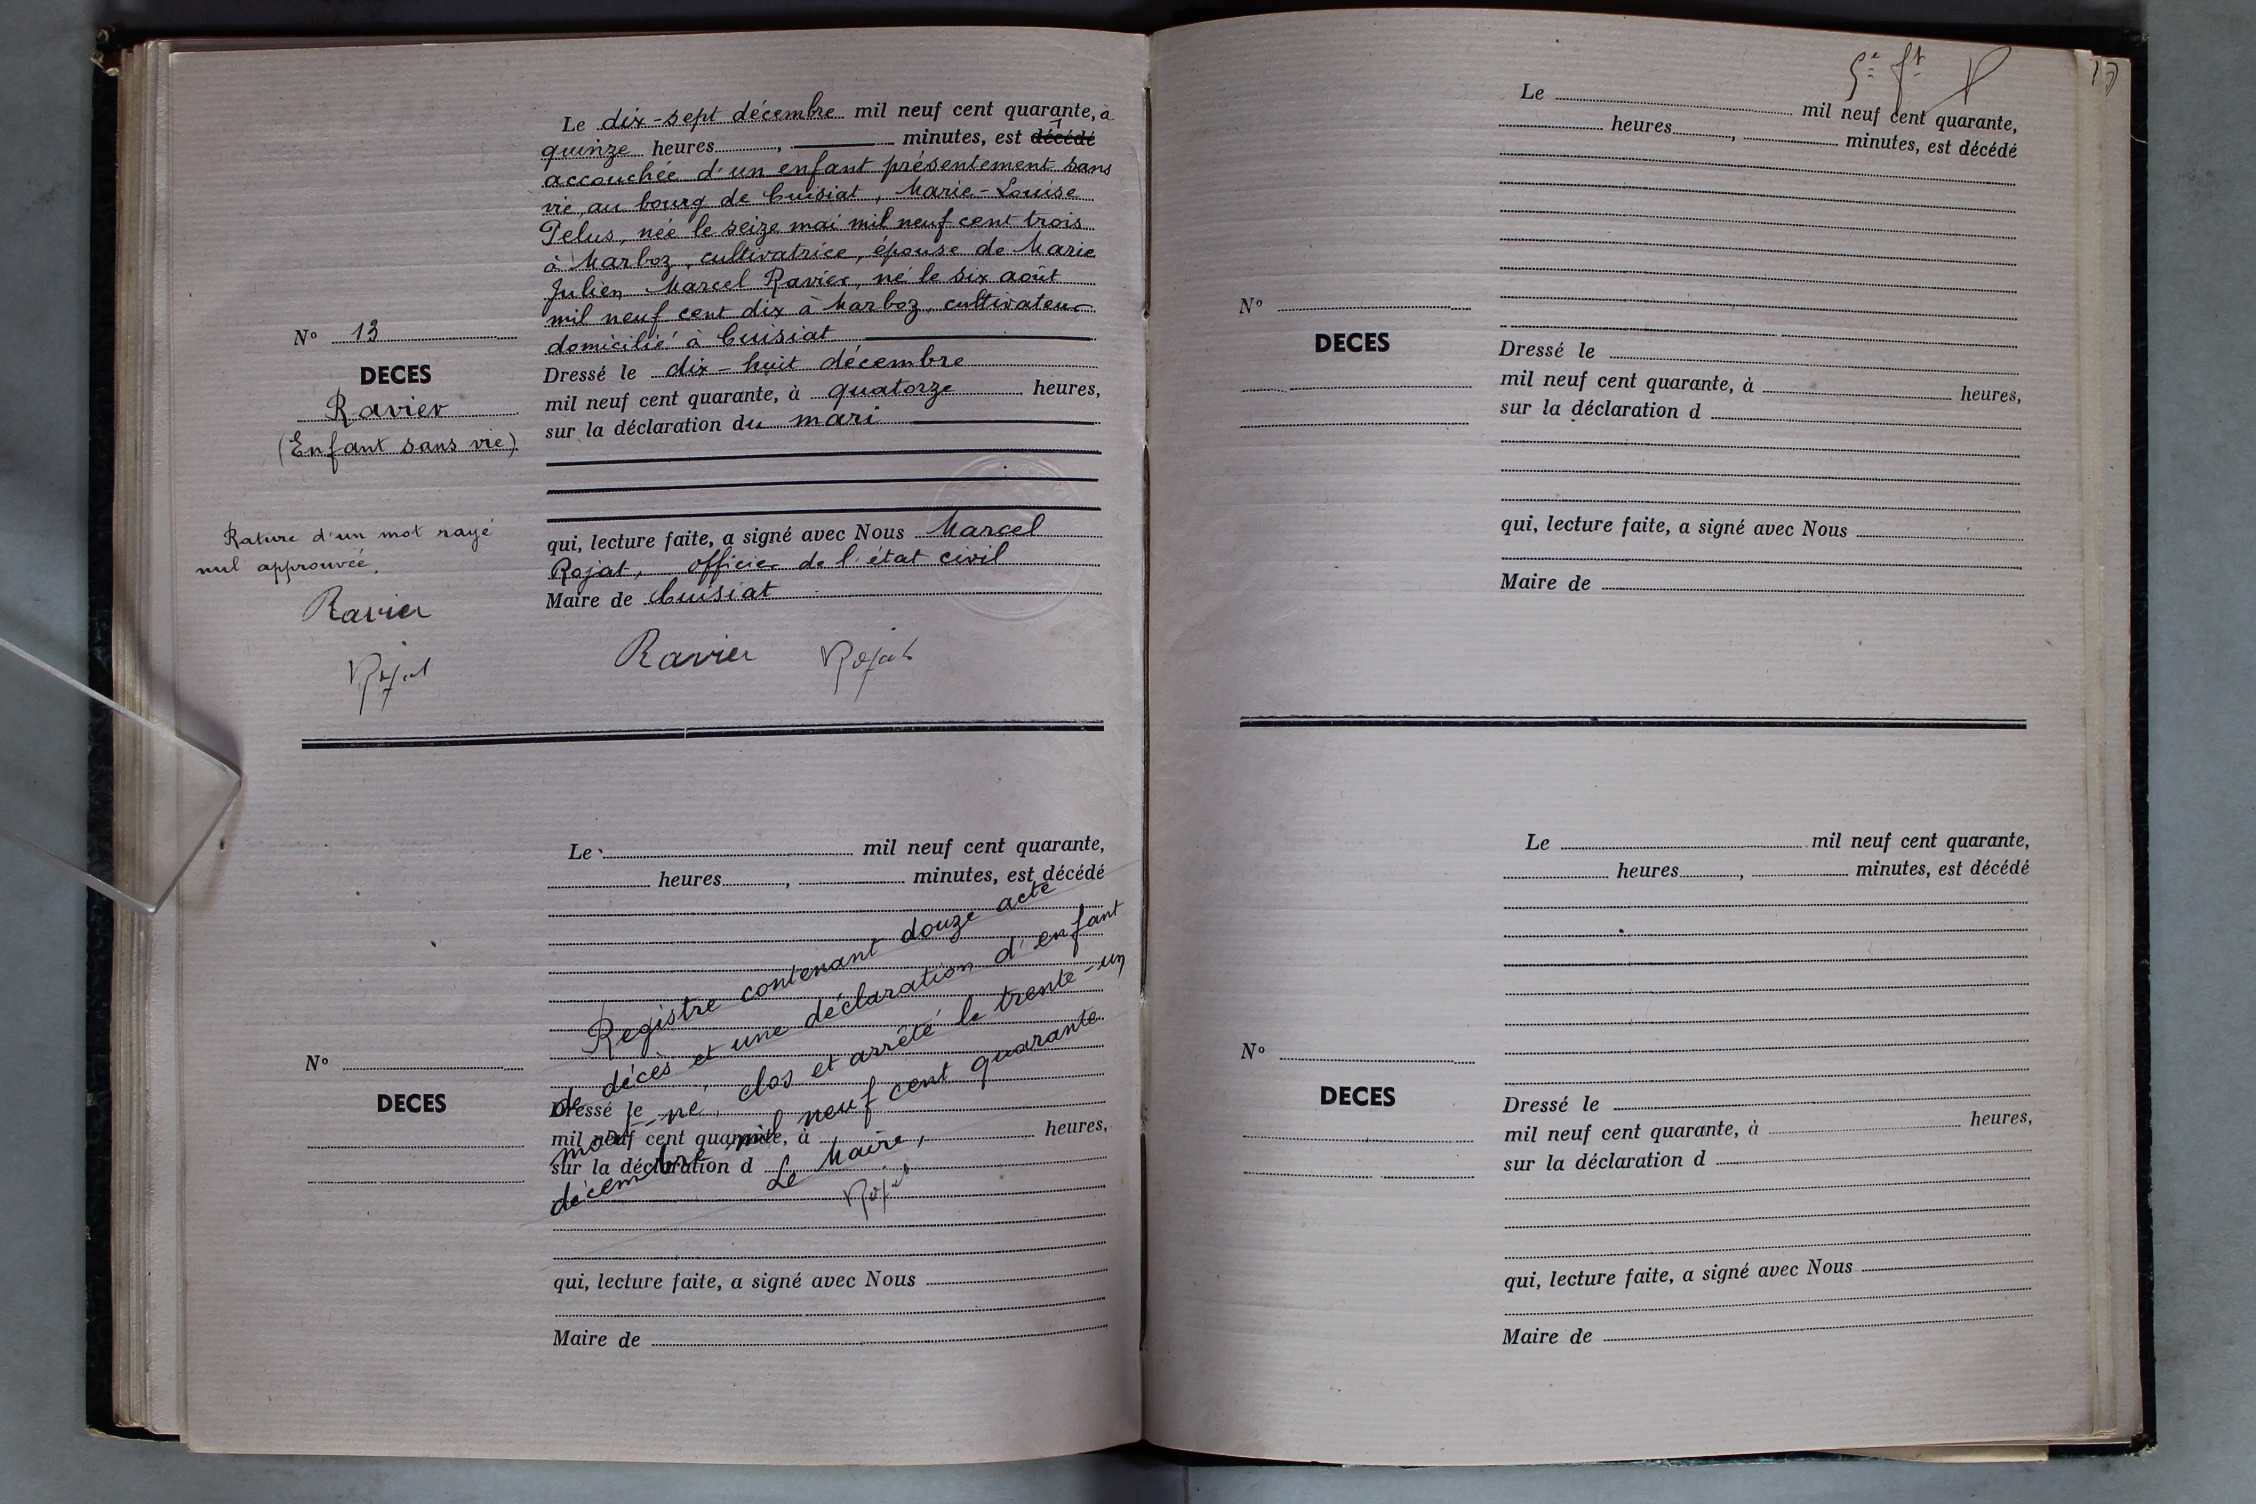 Le dix-sept décembre mil neuf cent quarante, à
quinze heures, minutes, est décédé
accouchée d'un enfant présentement sans
vie, au bourg de Cuisiat, Marie-Louise
Pelus, née le seize mai mil neuf cent trois
à Marboz, cultivatrice, épouse de Marie
Julien Marcel Ravier, né le six août
mil neuf cent dix à Marboz, cultivateur
domicilié à Cuisiat
Dressé le dix-huit décembre
mil neuf cent quarante, à quatorze heures,
sur la déclaration du mari
qui, lecture faite, a signé avec Nous Marcel
Rojat, officier de l'état civil
Maire de Cuisiat
Ravier Rojat
N° 13
DECES
Ravier
(Enfant sans vie)
Rature d'un mot rayé
nul approuvée.
Ravier
Rojat
Le mil neuf cent quarante,
heures, minutes, est décédé
Registre contenant douze acte
de décès et une déclaration d'enfant
mort-né, clos et arrêté le trente-un
décembre mil neuf cent quarante
Le Maire,
Rojat
Dressé le
mil neuf cent quarante, à heures,
sur la déclaration d
qui, lecture faite, a signé avec Nous
Maire de
N°
DECES
Le mil neuf cent quarante,
heures, minutes, est décédé
N°
DECES
Dressé le
mil neuf cent quarante, à heures,
sur la déclaration d
qui, lecture faite, a signé avec Nous
Maire de
Le mil neuf cent quarante,
heures, minutes, est décédé
N°
DECES
Dressé le
mil neuf cent quarante, à heures,
sur la déclaration d
qui, lecture faite, a signé avec Nous
Maire de